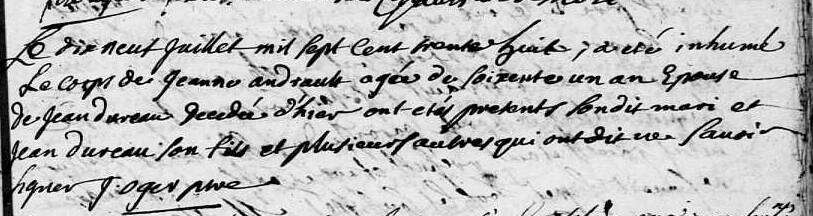 Le dix neuf Juillet mil sept Cent trente huit, a été inhumé
Le corps de Jeanne andrault agée de soixente un an Epouse
de Jean dureau decedée d'hier ont etés presents sondit mari et
Jean dureau son fils et plusieurs autres qui ont dit ne savoir
signer J oger ptre